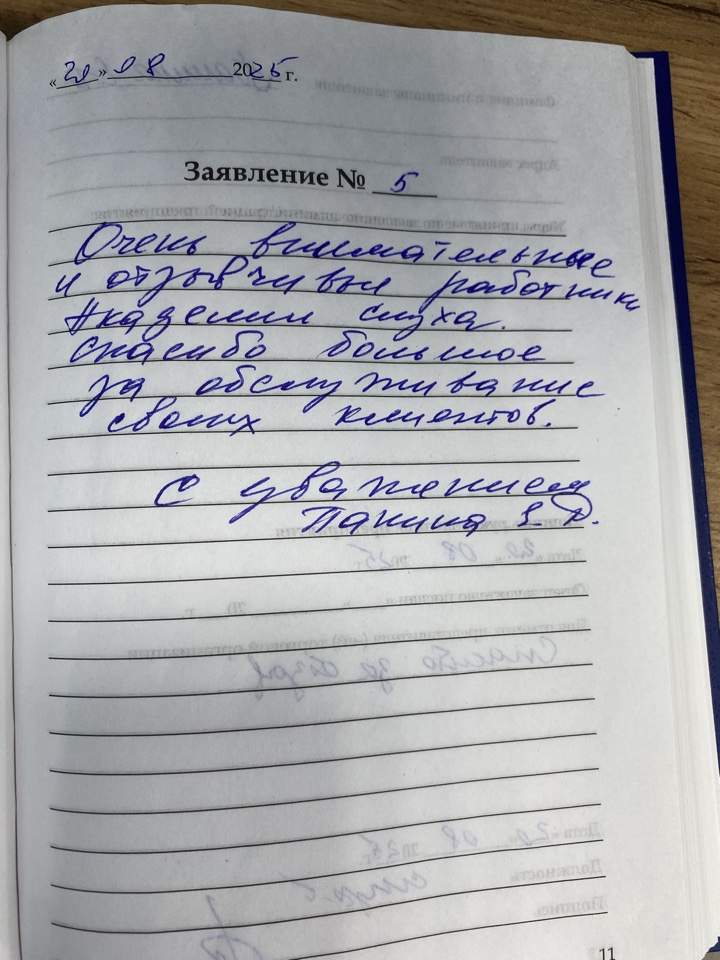 «20» 08 2025 г.
Заявление № 5
Очень внимательные
и отзывчивые работники
Академии слуха.
Спасибо большое
за обслуживание
своих клиентов.
С уважением
Панина
11